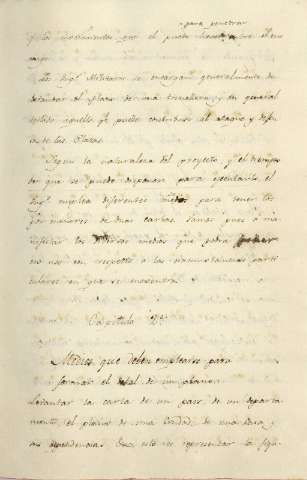 para penetrar
y los movimientos que el puede hacer
Los Ing.s Militares se encargan generalmente de
levantar el plano de una trinchera, y en general
todo aquello q.e puede contribuir al ataque y defen
sa de las Plazas.
Segun la naturaleza del proyecto, y el tiempo
de que se puede disponer para ejecutarlo, el
Ing.r emplea diferentes medios para tener los
pormenores de una carta: vamos pues á ma
nifestar los diversos medios que podrá poner
en respecto á las circunstancias parti
culares en que se encuentra.
Capitulo 2.º
Medios que deben emplearse para
formar el total de un plano.
Levantar la carta de un pais, de un departa
mento, el plano de una Ciudad, de una Plaza y
sus dependencias representar la figu-